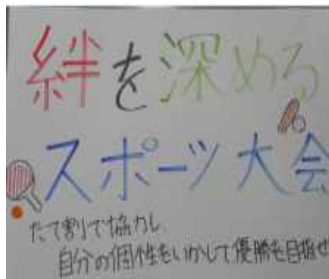 絆を深める
スポーツ大会
たて割で協力し
自分の個性をいかして優勝を目指せ